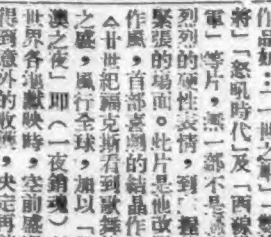 作品如「一世之雄」
將」「怒吼時代」及「西線
電」等片，無一部不是
烈烈的硬性表情，到「
緊張的場面。此片是他改
作風，首部喜劇的結晶作
〈廿世紀福克斯看到歌舞
之盛，風行全球，加以「
澳之夜」即（一夜銷魂）
世界各地獻映時，空前盛
得到意外的收穫，決定再